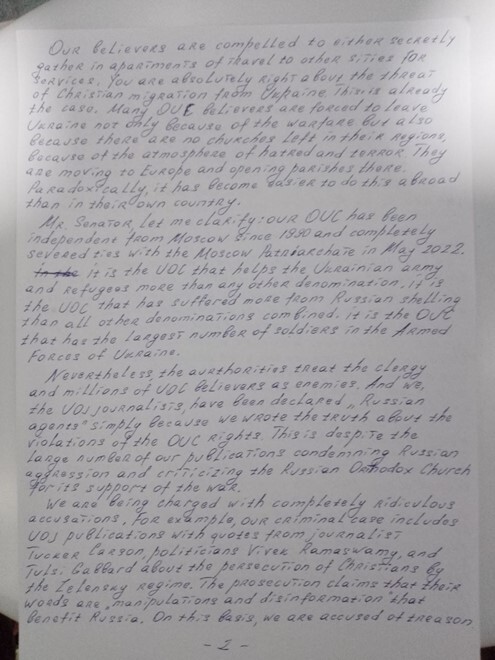 Our believers are compelled to either secretly
gather in apartments of travel to other sities for
services. You are absolutely right about the threat
of Christian migration from Ukraine. This is already
the case. Many OUC believers are forced to leave
Ukraine not only because of the warfare but also
because there are no churches left in their regions,
because of the atmosphere of hatred and terror. They
are moving to Europe and opening parishes there.
Paradoxically, it has become easier to do this abroad
than in their own country.
Mr. Senator, let me clarify: our OUC has been
independent from Moscow since 1990 and completely
severed ties with the Moscow Patriarchate in May 2022.
It is the UOC that helps the Ukrainian army
and refugees more than any other denomination, it is
the UOC that has suffered more from Russian shelling
than all other denominations combined. It is the OUC
that has the largest number of soldiers in the Armed
Forces of Ukraine.
Nevertheless, the aurthorities treat the clergy
and millions of UOC believers as enemies. And we,
the UOJ journalists, have been declared „Russian
agents" simply because we wrote the truth about the
violations of the OUC rights. This is despite the
large number of our publications condemning Russian
aggression and criticizing the Russian Orthodox Church
for its support of the war.
We are being charged with completely ridiculous
accusations. For example, our criminal case includes
UOJ publications with quotes from journalist
Tucker Carson, politicians Vivek Ramaswamy, and
Tulsi Gabbard about the persecution of Christians by
the Zelensky regime. The prosecution claims that their
words are „manipulations and disinformation" that
benefit Russia. On this basis, we are accused of treason
- 2 -